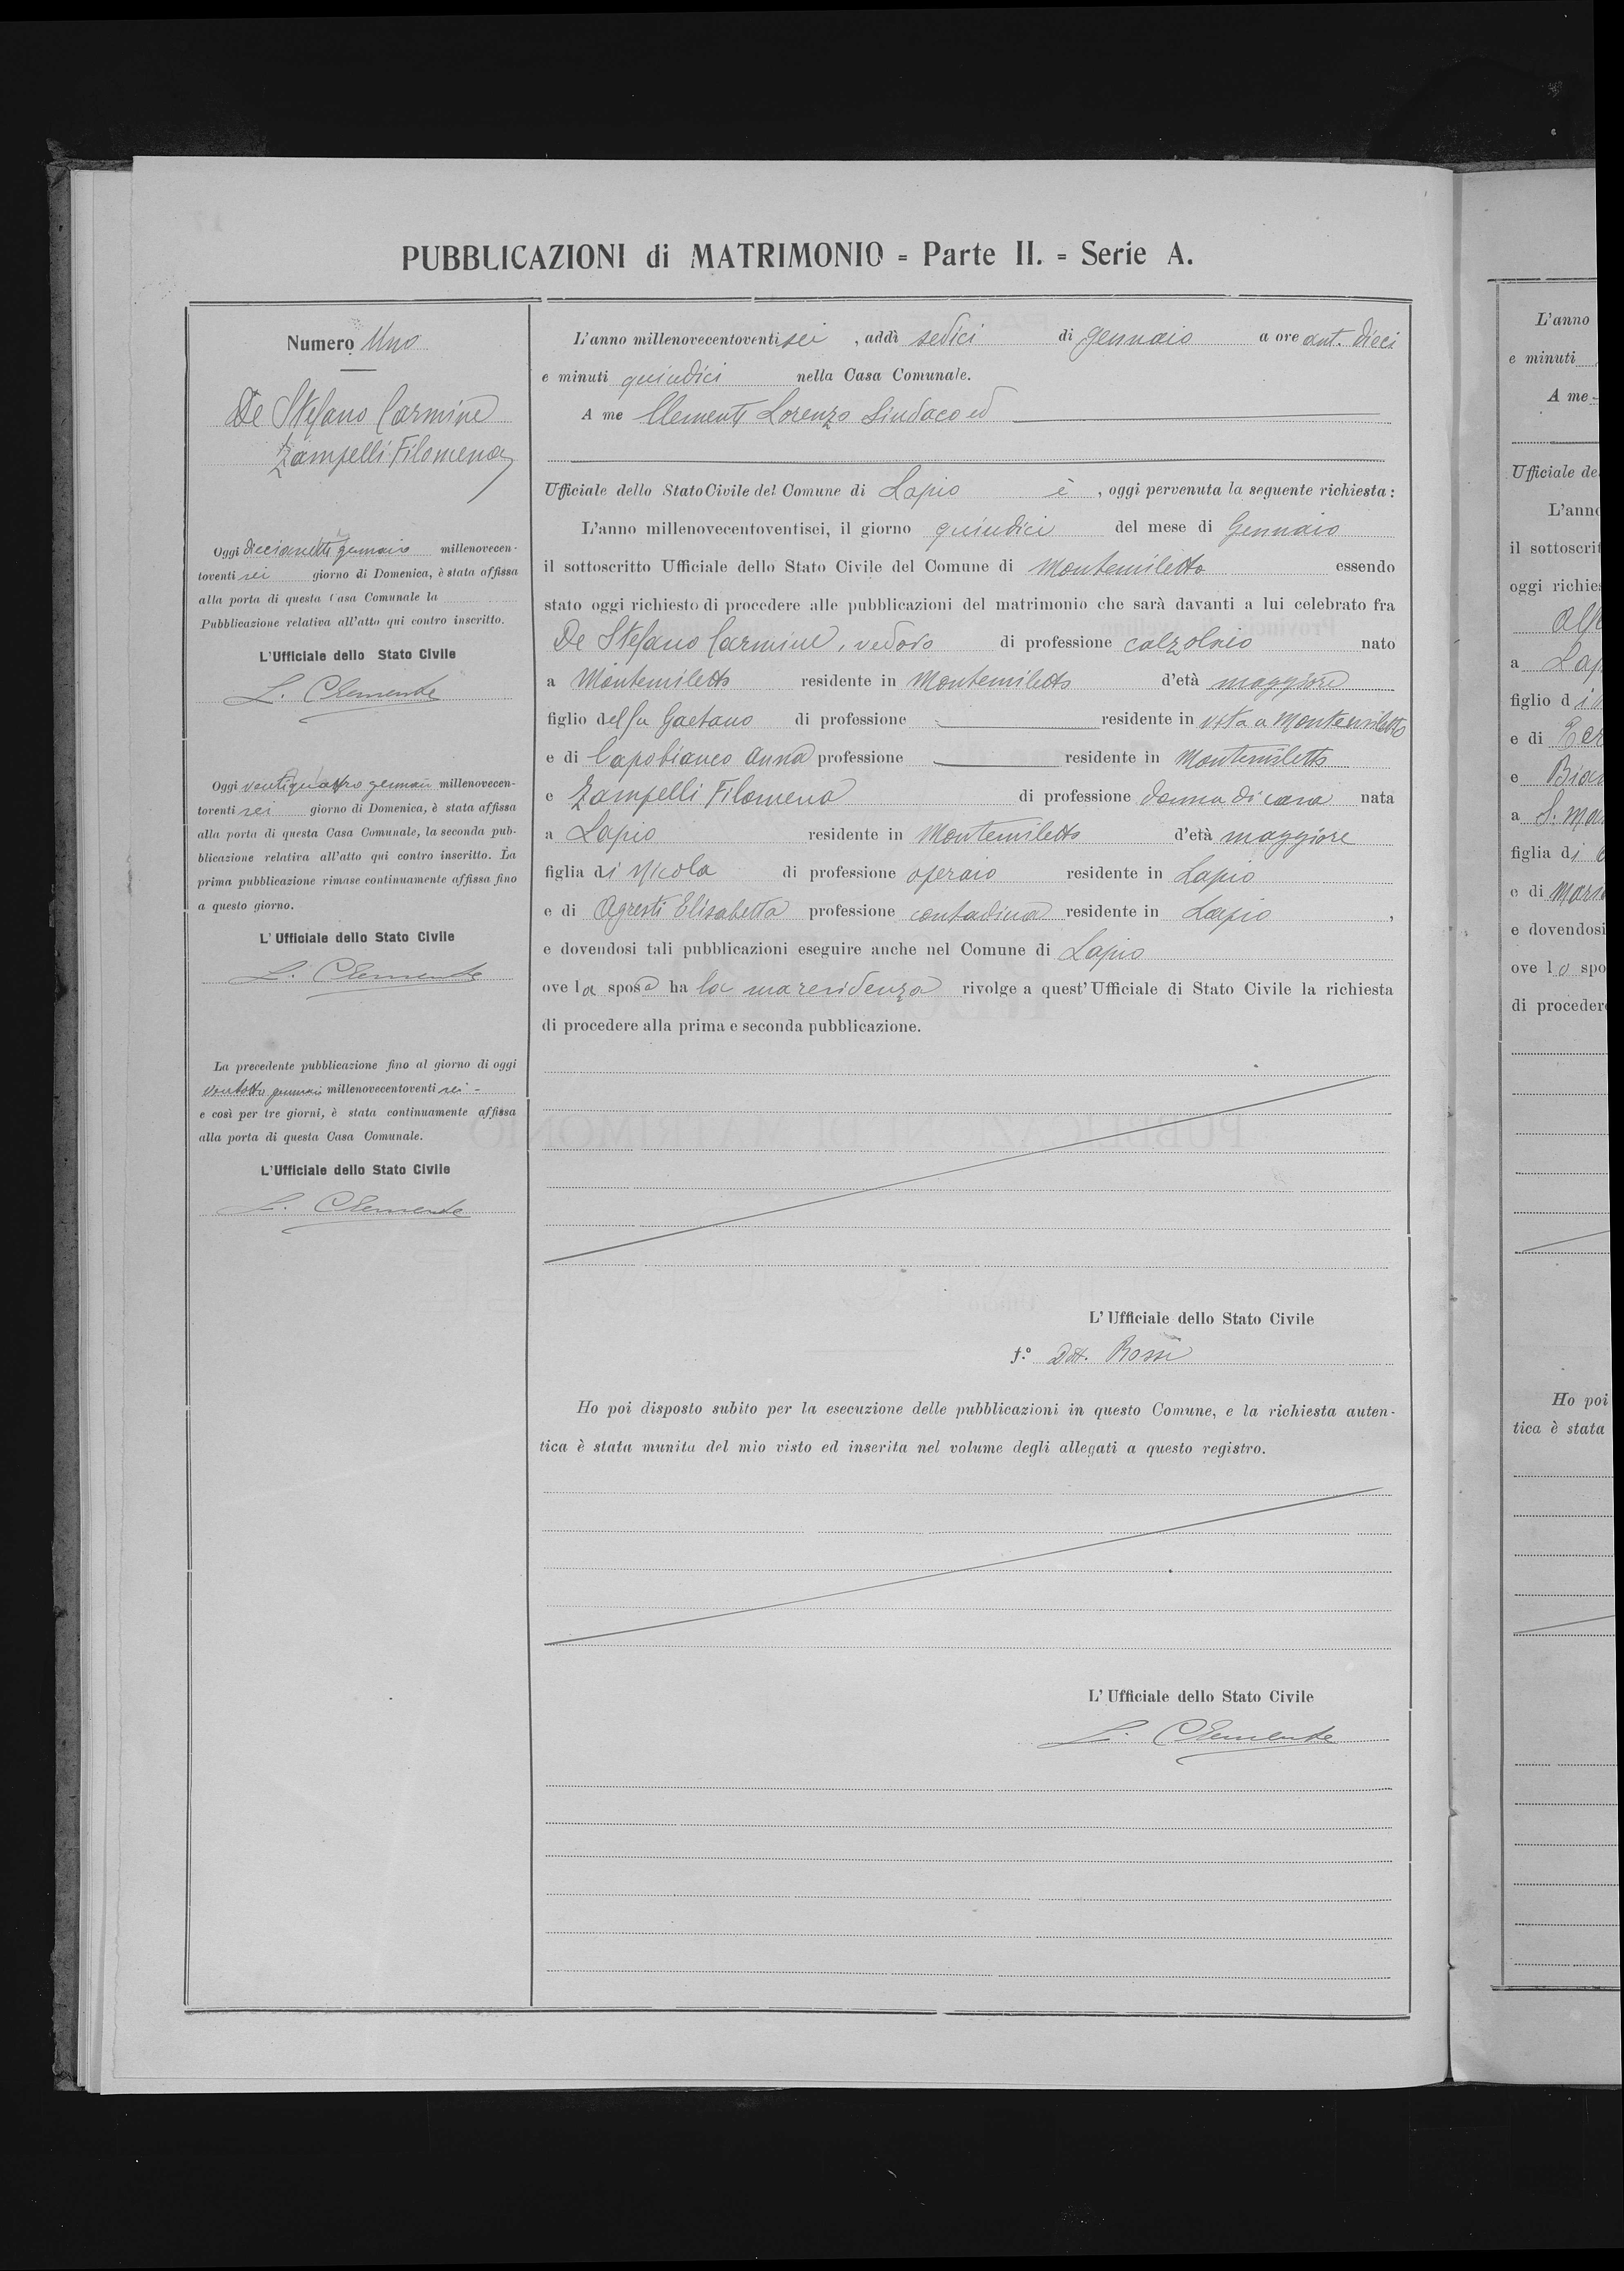 PUBBLICAZIONI di MATRIMONIO = Parte II. = Serie A.
Numero Uno
De Stefano Carmine
Zampelli Filomena
Oggi diecianette gennaio millenovecen-
toventi sei giorno di Domenica, è stata affissa
alla porta di questa Casa Comunale la
Pubblicazione relativa all'atto qui contro inscritto.
L'Ufficiale dello Stato Civile
L. Clemente
Oggi ventiquattro gennaio millenovecen-
toventi sei giorno di Domenica, è stata affissa
alla porta di questa Casa Comunale, la seconda pub-
blicazione relativa all'atto qui contro inscritto. La
prima pubblicazione rimase continuamente affissa fino
a questo giorno.
L'Ufficiale dello Stato Civile
L. Clemente
La precedente pubblicazione fino al giorno di oggi
ventotto gennaio millenovecentoventi sei -
e così per tre giorni, è stata continuamente affissa
alla porta di questa Casa Comunale.
L'Ufficiale dello Stato Civile
L. Clemente
L'anno millenovecentoventi sei , addì sedici di gennaio a ore ant. dieci
e minuti quindici nella Casa Comunale.
A me Clemente Lorenzo Sindaco ed
Ufficiale dello Stato Civile del Comune di Lapio è , oggi pervenuta la seguente richiesta:
L'anno millenovecentoventisei, il giorno quindici del mese di Gennaio
il sottoscritto Ufficiale dello Stato Civile del Comune di Montemiletto essendo
stato oggi richiesto di procedere alle pubblicazioni del matrimonio che sarà davanti a lui celebrato fra
De Stefano Carmine, vedovo di professione calzolaio nato
a Montemiletto residente in Montemiletto d'età maggiore
figlio del fu Gaetano di professione residente in vita a Montemiletto
e di Capobianco Anna professione residente in Montemiletto
e Zampelli Filomena di professione donna di casa nata
a Lapio residente in Montemiletto d'età maggiore
figlia di Nicola di professione operaio residente in Lapio
e di Agresti Elisabetta professione contadina residente in Lapio ,
e dovendosi tali pubblicazioni eseguire anche nel Comune di Lapio
ove la sposa ha la sua residenza rivolge a quest'Ufficiale di Stato Civile la richiesta
di procedere alla prima e seconda pubblicazione.
L'Ufficiale dello Stato Civile
f.° Dott. Rossi
Ho poi disposto subito per la esecuzione delle pubblicazioni in questo Comune, e la richiesta auten-
tica è stata munita del mio visto ed inserita nel volume degli allegati a questo registro.
L'Ufficiale dello Stato Civile
L. Clemente
L'anno
e minuti
A me
Ufficiale de
L'anno
il sottoscrit
oggi richies
a Lap
figlio d
e di
e Bian
a S. Ma
figlia di
e di Maria
e dovendosi
ove lo spo
di procedere
Ho poi
tica è stata